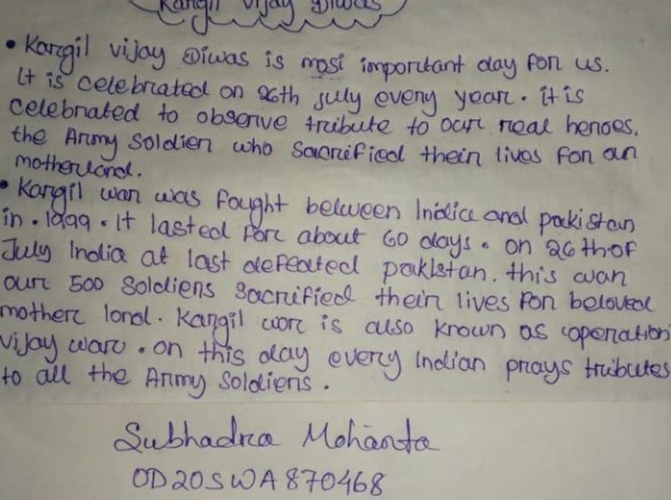 Kargil Vijay Diwas
• Kargil vijay Diwas is most important day for us.
It is celebrated on 26th july every year. it is
celebrated to observe tribute to our real heroes.
the Army Soldier who Sacrified their lives for an
motherland.
• Kargil war was fought between India and pakistan
in. 1999. It lasted for about 60 days. on 26th of
July India at last defeated pakistan. this war
our 500 Soldiers Sacrified their lives for beloved
mother lond. Kargil war is also known as operation
vijay war. on this day every Indian prays tributes
to all the Army Soldiers.
Subhadra Mohanta
OD20SWA870468